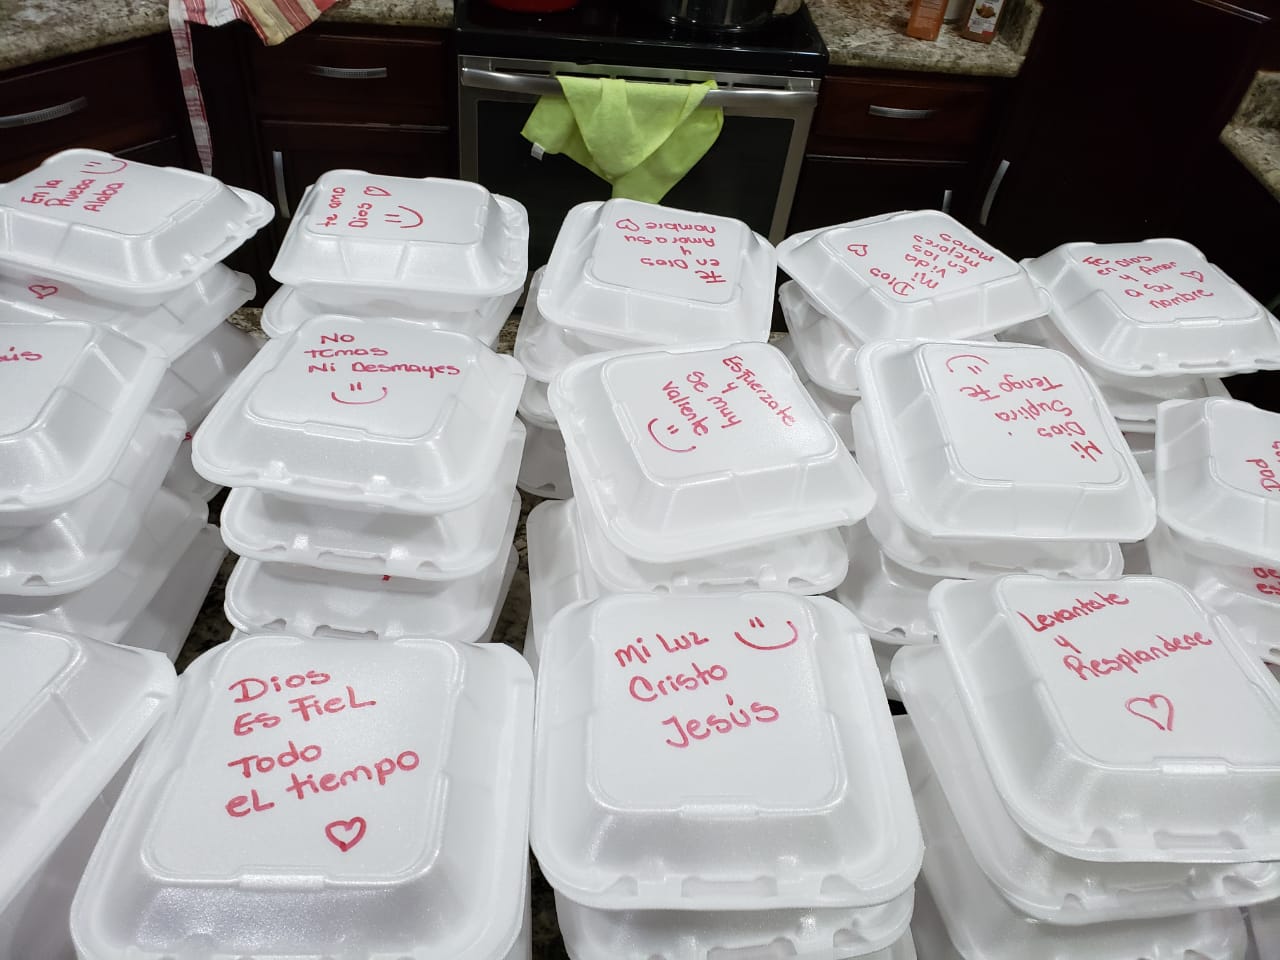 En la
Prueba
Alaba
te amo
Dios
Fe
en Dios
y
Amor a su
nombre
Dios
mi
vida
en las
mejores
manos
Fe
en Dios
y Amar
ús
No
temas
Ni Desmayes
Esfuerzate
y
se muy
valiente
Mi
Dios
Suplira
Tengo Fe
Dad
de
Dios
Es Fiel
Todo
el tiempo
Mi Luz
Cristo
Jesús
Levantate
y
Resplandece